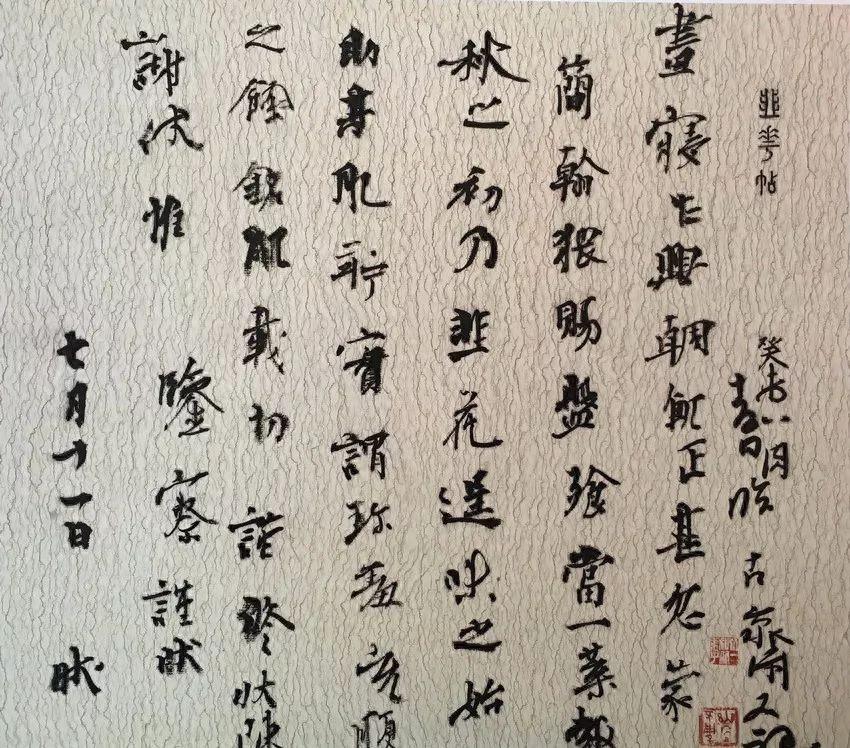 韭華帖
晝寢乍興朝飢正甚忽蒙
簡翰猥賜盤飧當一葉報
秋之初乃韭花逞味之始
助其肥羜實謂珍羞充腹
之餘銘肌載切謹修狀陳
謝伏惟
鑒察謹狀
七月十一日 狀